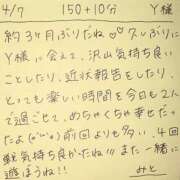 4/7 150+10分 Y様
約3ヶ月ぶりだね♡♡久しぶりに
Y様に会えて、沢山気持ち良い
ことしたり、近状報告をしたり、
とっても楽しい時間を今日も2人
で過ごせて、めちゃくちゃ幸せだっ
たよ(*´`*)前回よりも多い、4回
戦気持ち良かたね!!!また一緒に
遊ぼうね!!
みと